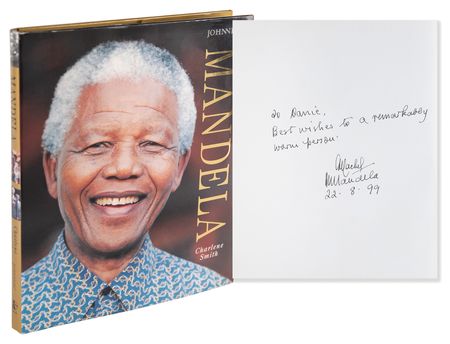 MANDELA
Charlene
JOHNN
MANDELA
Charlene
Smith
To Danie,
Best wishes to a remarkably
warm person.
Mandela
22.8.99